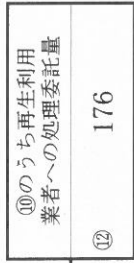 ⑩のうち再生利用
業者への処理委託量
⑫
176